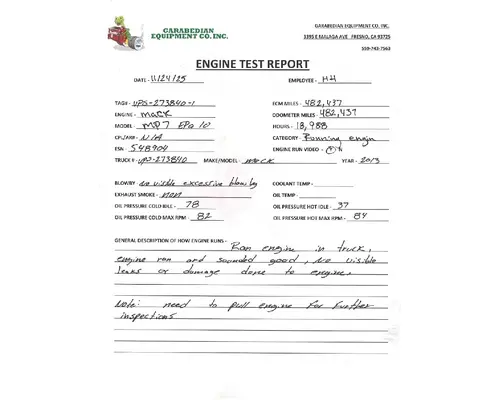 GARABEDIAN
EQUIPMENT CO. INC.
GARABEDIAN EQUIPMENT CO. INC.
3395 E MALAGA AVE FRESNO, CA 93725
ENGINE TEST REPORT
DATE - 11/24/25 EMPLOYEE - HH
TAG# - UPS-273840-1 ECM MILES - 482,437
ENGINE - MACK ODOMETER MILES - 482,437
MODEL - MP7 EPA 10 HOURS - 18,988
CPL/AR# - N/A CATEGORY - Running engin
ESN - 548904 ENGINE RUN VIDEO - Y
TRUCK # - UPS-273840 MAKE/MODEL - MACK YEAR - 2013
BLOWBY - no visible excessive blow by COOLANT TEMP -
EXHAUST SMOKE - non OIL TEMP -
OIL PRESSURE COLD IDLE - 78 OIL PRESSURE HOT IDLE - 37
OIL PRESSURE COLD MAX RPM - 82 OIL PRESSURE HOT MAX RPM - 84
GENERAL DESCRIPTION OF HOW ENGINE RUNS - Ran engine in truck,
engine ran and sounded good, No visible
leaks or damage done to engine.
Note: need to pull engine for further
inspections